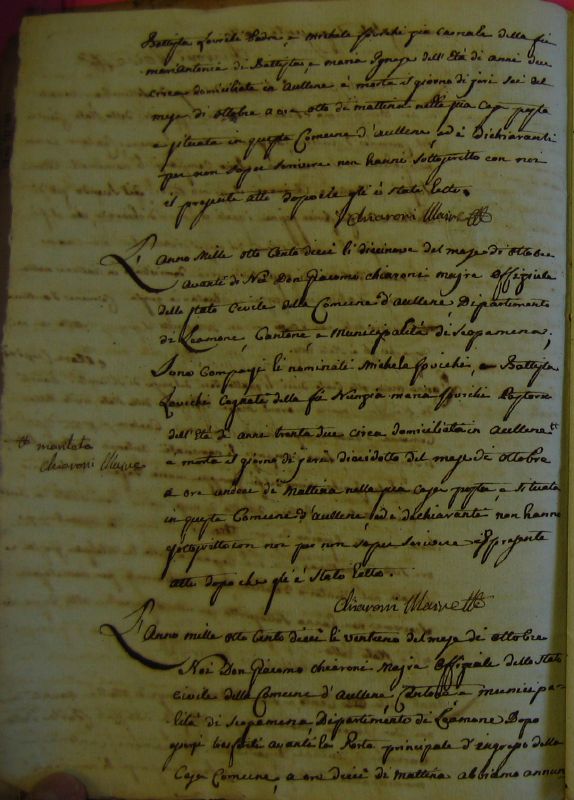 Battista Padre, e Michele già Casuale della fù
di Battista, e maria Agnese dell'Età di anni due
circa domiciliata in Aullene è morta il giorno di jeri sei del
mese di ottobre a ore otto di mattina nella sua Casa posta
e situata in questa Comune d'Aullene, ed i Dichiaranti
per non saper scrivere non hanno sottoscritto con noi
il presente atto dopo che gli è stato letto.
Chiaroni Maire
L'Anno Mille otto Cento dieci li diecinove del mese di ottobre
Avanti di Noi Don Giacomo Chiaroni Majre Offiziale
dello stato Civile della Comune d'Aullene Dipartimento
di Leamone, Cantone, e Municipalità di Scopamena,
Sono Comparsi li nominati Michele, e Battista
Cognati della fù Nunzia maria Pastore
dell'Età di anni trenta due circa domiciliata in Aullene
è morta il giorno di jeri dieciotto del mese di ottobre
a ore undeci di Mattina nella sua Casa posta e situata
in questa Comune d'Aullene, ed i dichiaranti non hanno
sottoscritto con noi per non saper scrivere il presente
atto dopo che gli è stato letto.
maritata
Chiaroni Maire
Chiaroni Maire
L'Anno mille otto Cento dieci li ventuno del mese di ottobre
Noi Don Giacomo Chiaroni Majre Offiziale dello Stato
Civile della Comune d'Aullene Cantone, e municipa-
lità di Scopamena Dipartimento di Leamone Dopo
avanti la Porta principale d'ingresso della
Casa Comune, a ore dieci di mattina abbiamo annun